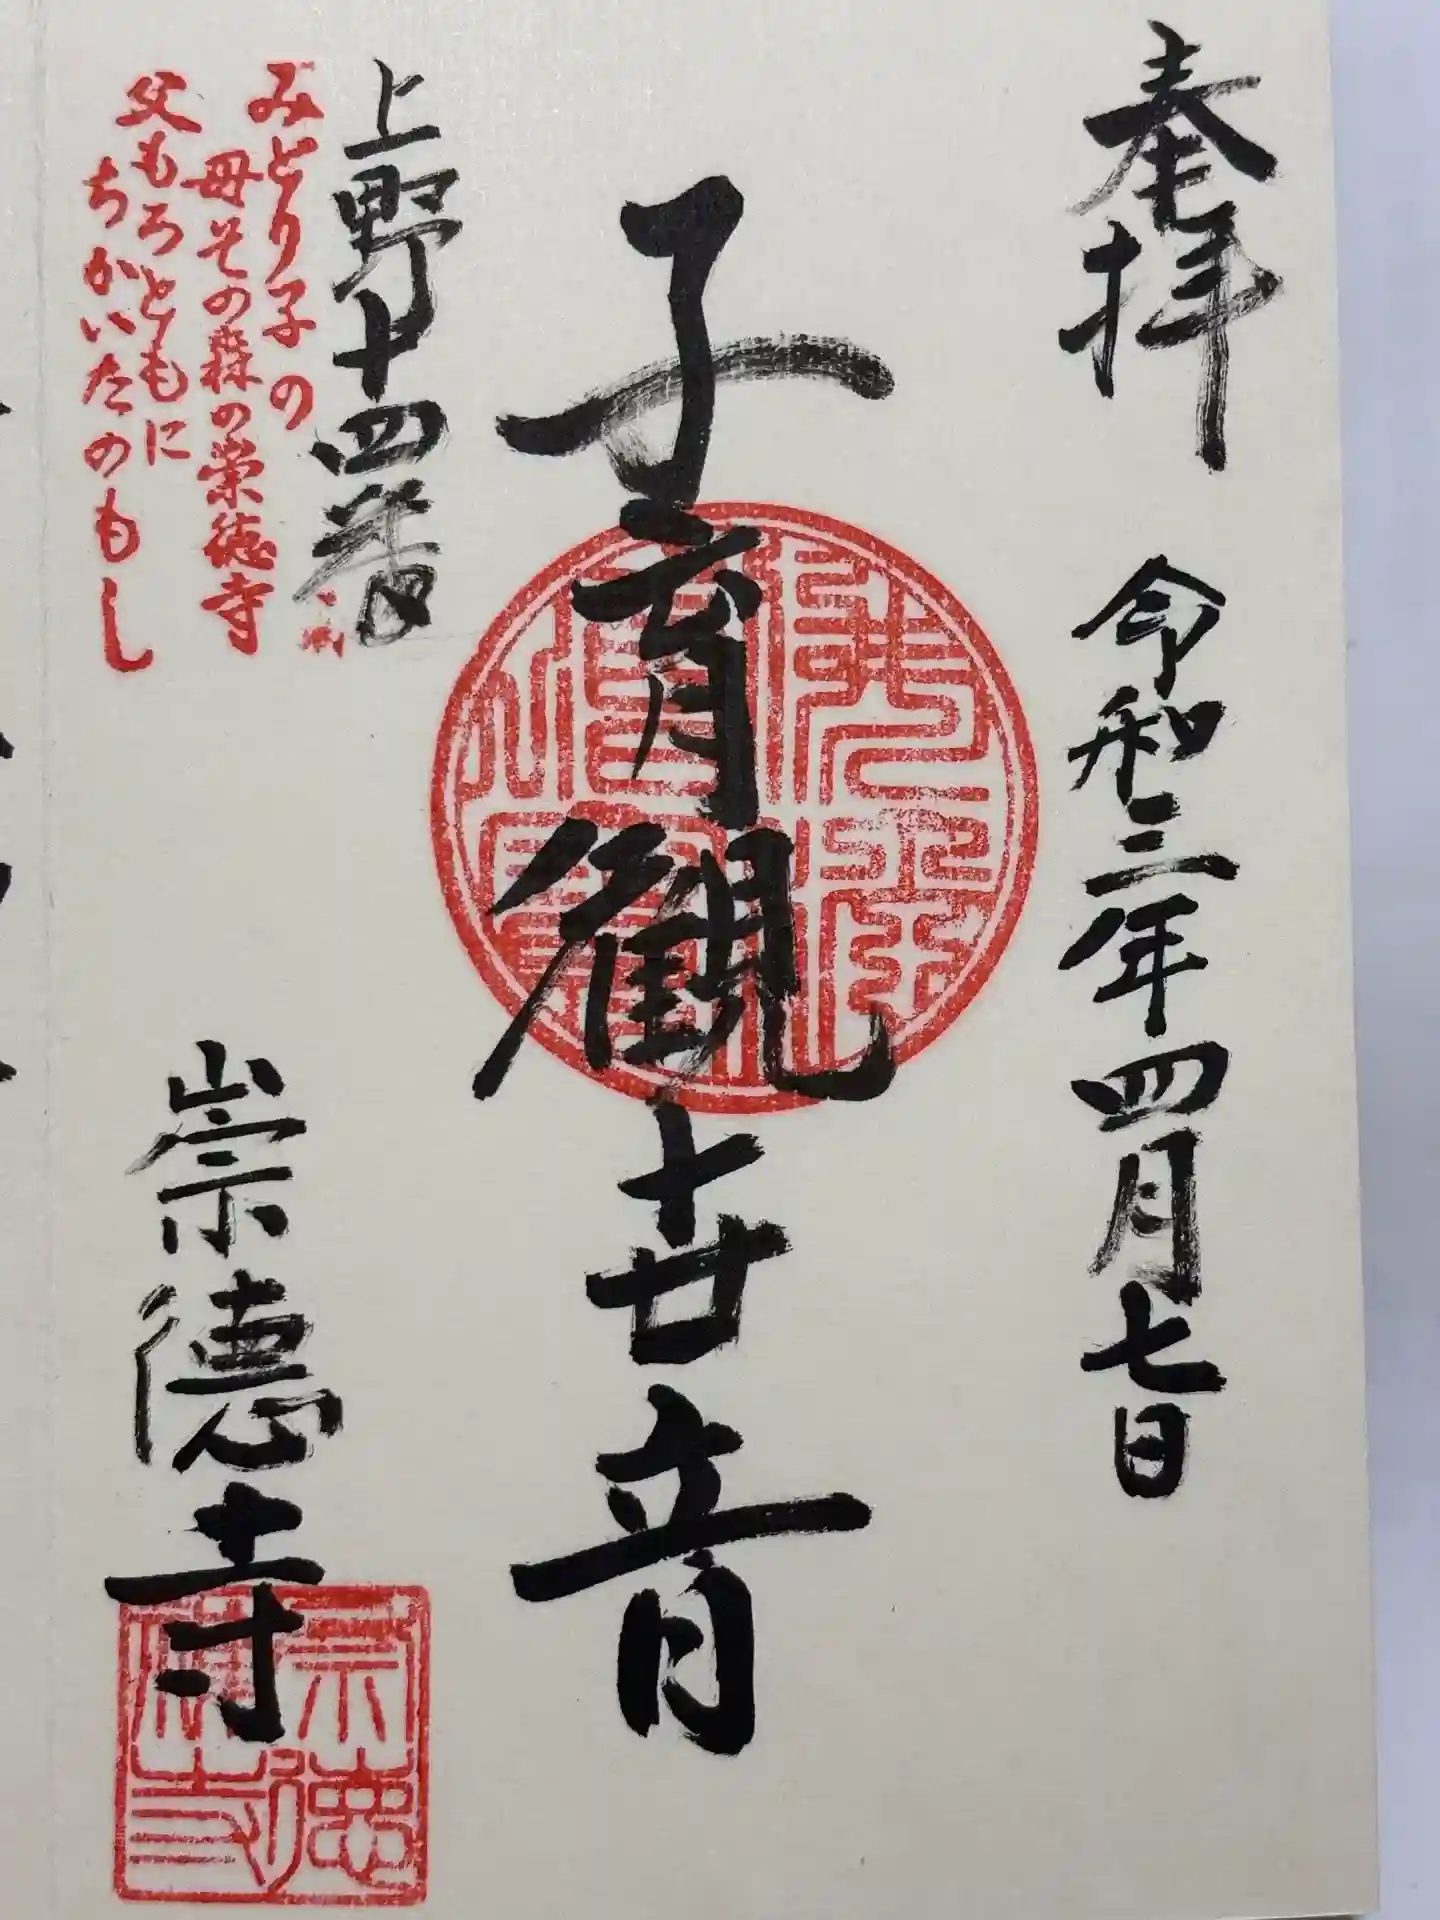 奉拝
令和三年四月七日
子育観世音
上野十四番
みどり子の
母その森の崇徳寺
父もろともに
ちかいたのもし
崇徳寺
崇徳
寺